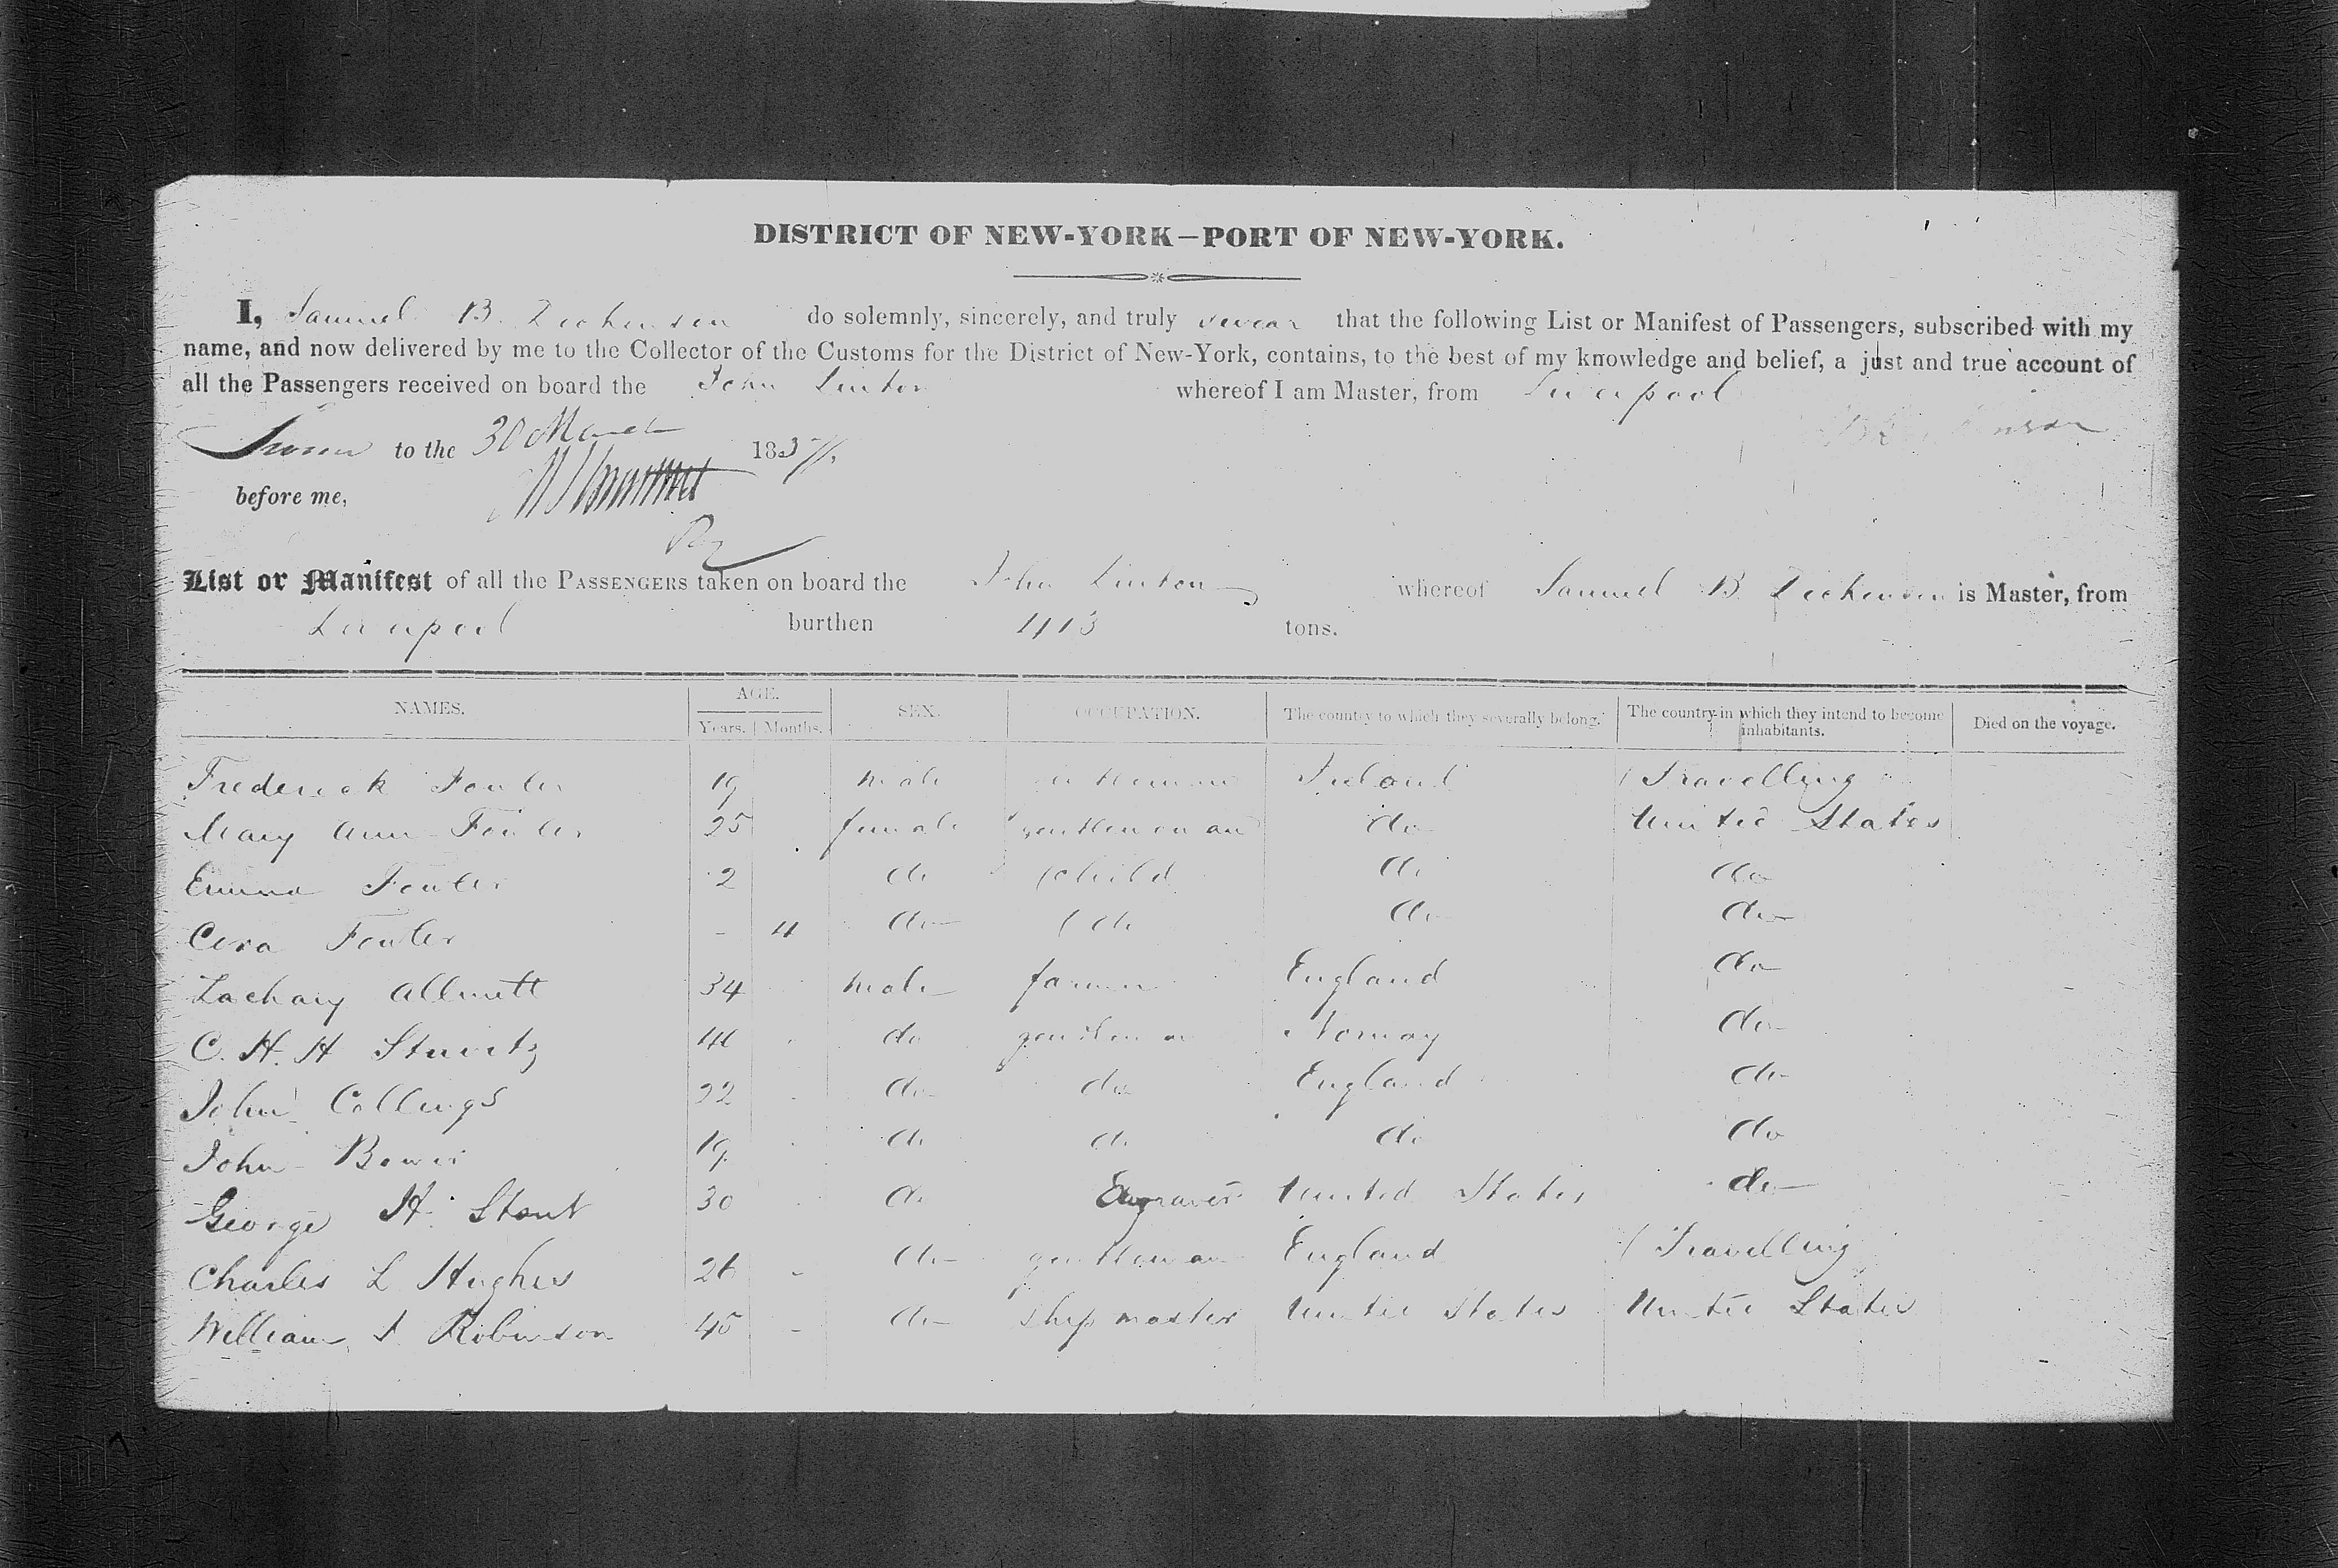 DISTRICT OF NEW-YORK–PORT OF NEW-YORK.
I, Samuel B. Dickenson do solemnly, sincerely, and truly swear that the following List or Manifest of Passengers, subscribed with my
name, and now delivered by me to the Collector of the Customs for the District of New-York, contains, to the best of my knowledge and belief, a just and true account of
all the Passengers received on board the John Linton whereof I am Master, from Liverpool
Sworn to the 30 March 1837
before me,
List or Manifest of all the PASSENGERS taken on board the John Linton whereof Samuel B Dickenson is Master, from
Liverpool burthen 413 tons.
NAMES. AGE. SEX. OCCUPATION. The country to which they severally belong. The country in which they intend to become inhabitants. Died on the voyage.
Years. Months.
Frederick Fowler 19 male Ireland Travelling
Mary Ann Fowler 25 female gentlewoman do United States
Emma Fowler 2 do child do do
Cora Fowler - 4 do do do do
Zachary Allnutt 34 male farmer England do
C. H. H 46 do gentleman Norway do
John Collings 22 do do England do
John 19 do do do do
George H. Stout 30 do Engraver United States do
Charles L Hughes 26 do gentleman England Travelling
William Robinson 45 - do ship master United States United States